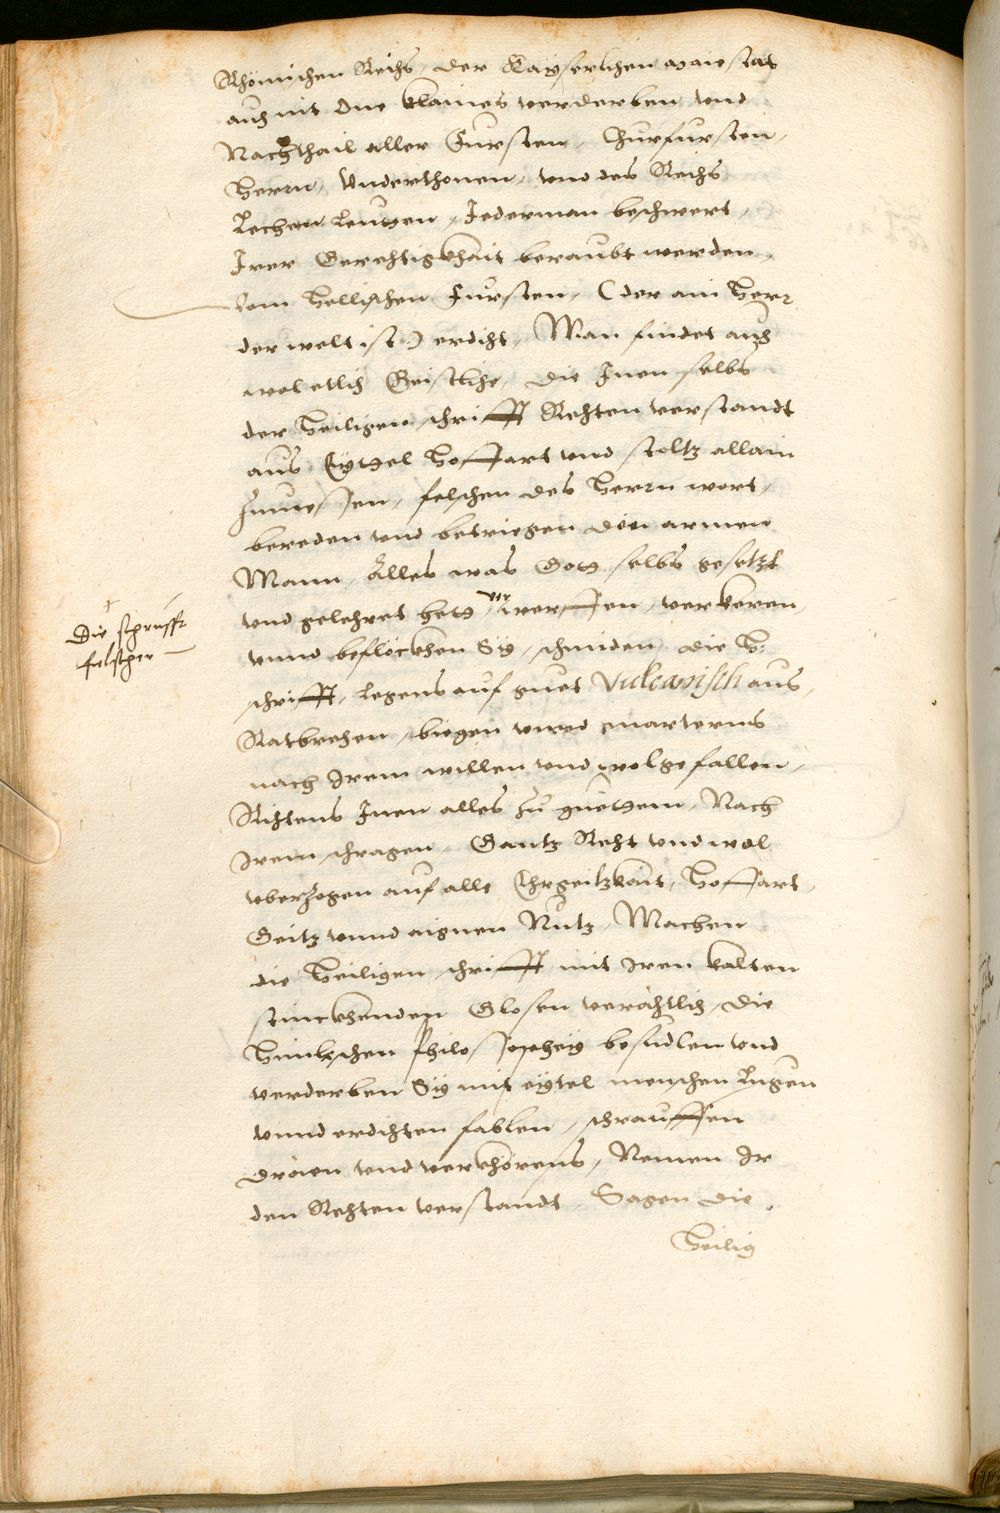 Rhömischen Reichs, der Kayserlichen Maiestat
auch nit One klaines verderben vnd
Nachthail aller Fursten, Churfursten,
Herrn, Vnderthonen, vnd des Reichs
Lechen Leuthen, Jederman beschwert,
Jrer Gerechtigkhait beraubt werden,
Vom Hellischen Fursten, (der ain Herr
der welt ist) erdicht, Man findet auch
wol etlich Geistliche, die Jnen selbs
der Heiligen schrifft Rechten verstandt
aus Eyttel Hoffart vnd stoltz allain
zumessen, felschen des Herrn wort,
bereden vnd betriegen den armen
Mann, Alles was Gott selbs gesetzt
vnd gelehret hett, verwerffen, verkeren,
vnnd beflöckhen Sy, schmiden die H:
schrifft, legens auf guet Vulcanisch aus,
Ratbrechen, biegen vnnd marterns
nach Jrem willen vnd wolgefallen,
Richtens Jnen alles zu guettem, Nach
Jrem schragen, Gantz Recht vnd wol
vberzogen auf alle Ehrgeitzkait, Hoffart,
Geitz vnnd aignen Nutz, Machen
die Heiligen schrifft mit Jren kalten
stinckhenden Glosen verächtlich, die
Himlischen Philosophey besudlen vnd
verderben Sy mit eyttel menschen Lugen
vnnd erdichten fablen, schrauffen
dräen vnd verkhörens, Nemen Jr
den Rechten verstandt, Sagen die
Heilig
Die schrufft
felscher